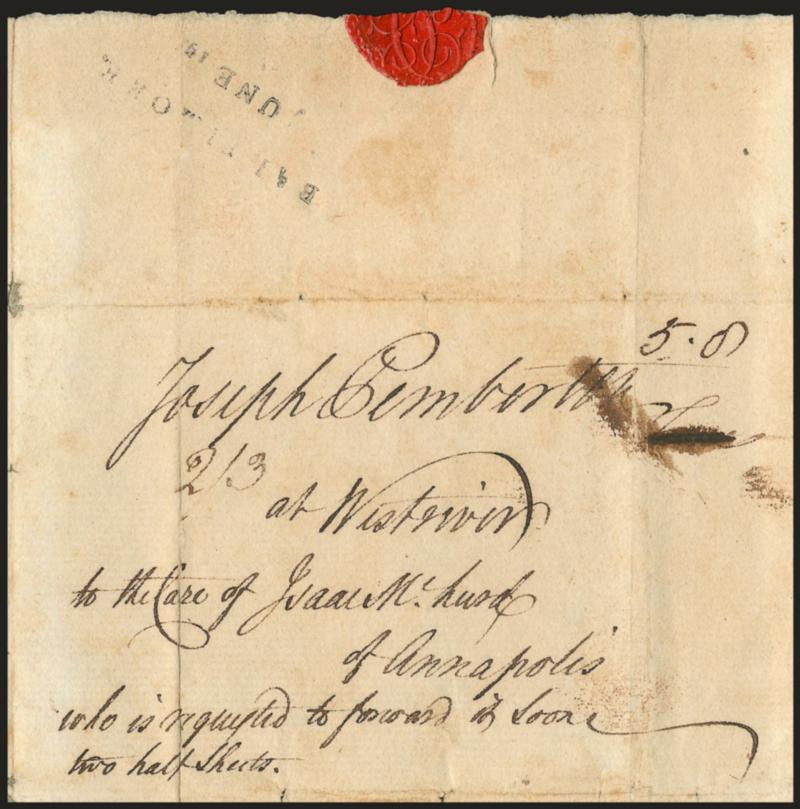 BALTIMORE
JUNE 19
5.8
Joseph Pemberton
2/3
at Westriver
to the Care of Isaac Mc. hard
of Annapolis
who is requested to forward it Soon
two half Sheets.